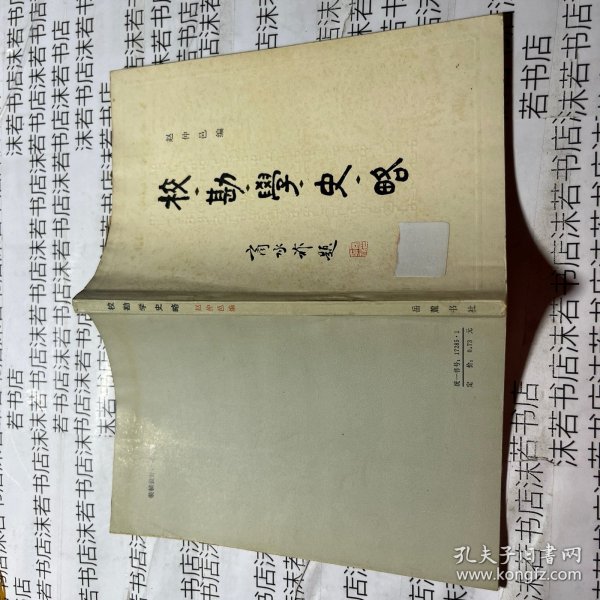 赵仲邑编
校·勘·學·史·略
商承祚題
校勘学史略 赵仲邑编 岳麓书社
统一书号:17285·1
定价:0.73元
孔夫子旧书网
www.kongfz.com
沫若书店沫若书店沫若书店沫若书店